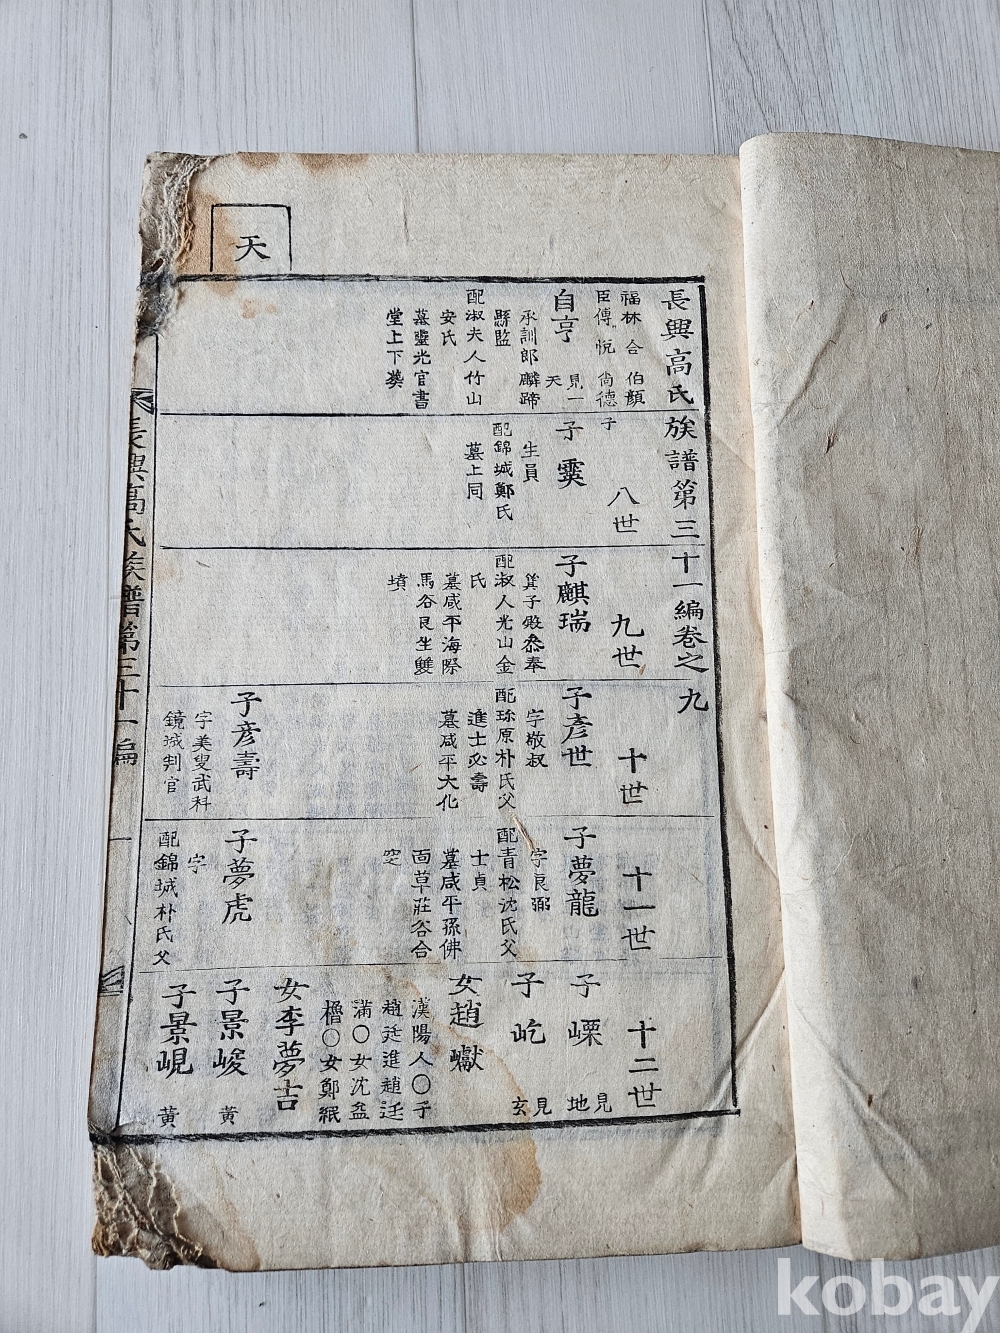 天
長興高氏族譜第三十一編卷之九
福林合伯顏
臣傅悅尙德
子
自亨
見一
天
承訓郎麟蹄
縣監
配淑夫人竹山
安氏
墓靈光官書
堂上下葬
八世
子霙
生員
配錦城鄭氏
墓上同
九世
子麒瑞
箕子殿叅奉
配淑人光山金
氏
墓咸平海際
馬谷艮坐雙
墳
十世
子彥世
字敬叔
配珎原朴氏父
進士必壽
墓咸平大化
子彥壽
字美叟武科
鏡城判官
十一世
子夢龍
字良弼
配青松沈氏父
士貞
墓咸平孫佛
面草莊谷合
窆
子夢虎
字
配錦城朴氏父
十二世
子嶫
見地
子屹
見玄
女趙巘
漢陽人〇子
趙廷進趙廷
滿〇女沈益
櫓〇女鄭緡
女李夢吉
子景峻
黃
子景峴
黃
長興高氏族譜第三十一編
一
kobay